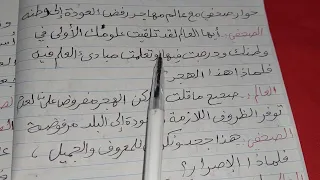 حوار صحفي مع عالم مهاجر رفض العودة إلى وطنه
الصحفي : أيها العالم لقد تلقيت علومك الأولى في
وطنك ودرست فيها وتعلمت مبادئ العلم فيه
فلماذا هذا الهجر؟
العالم : صحيح ما قلت لكن الهجر مفروض علينا لعدم
توفر الظروف اللازمة إلى البلد مرفوضة
الصحفي : هذا جحد ونكر للمعروف والجميل ،
فلماذا الإصرار؟